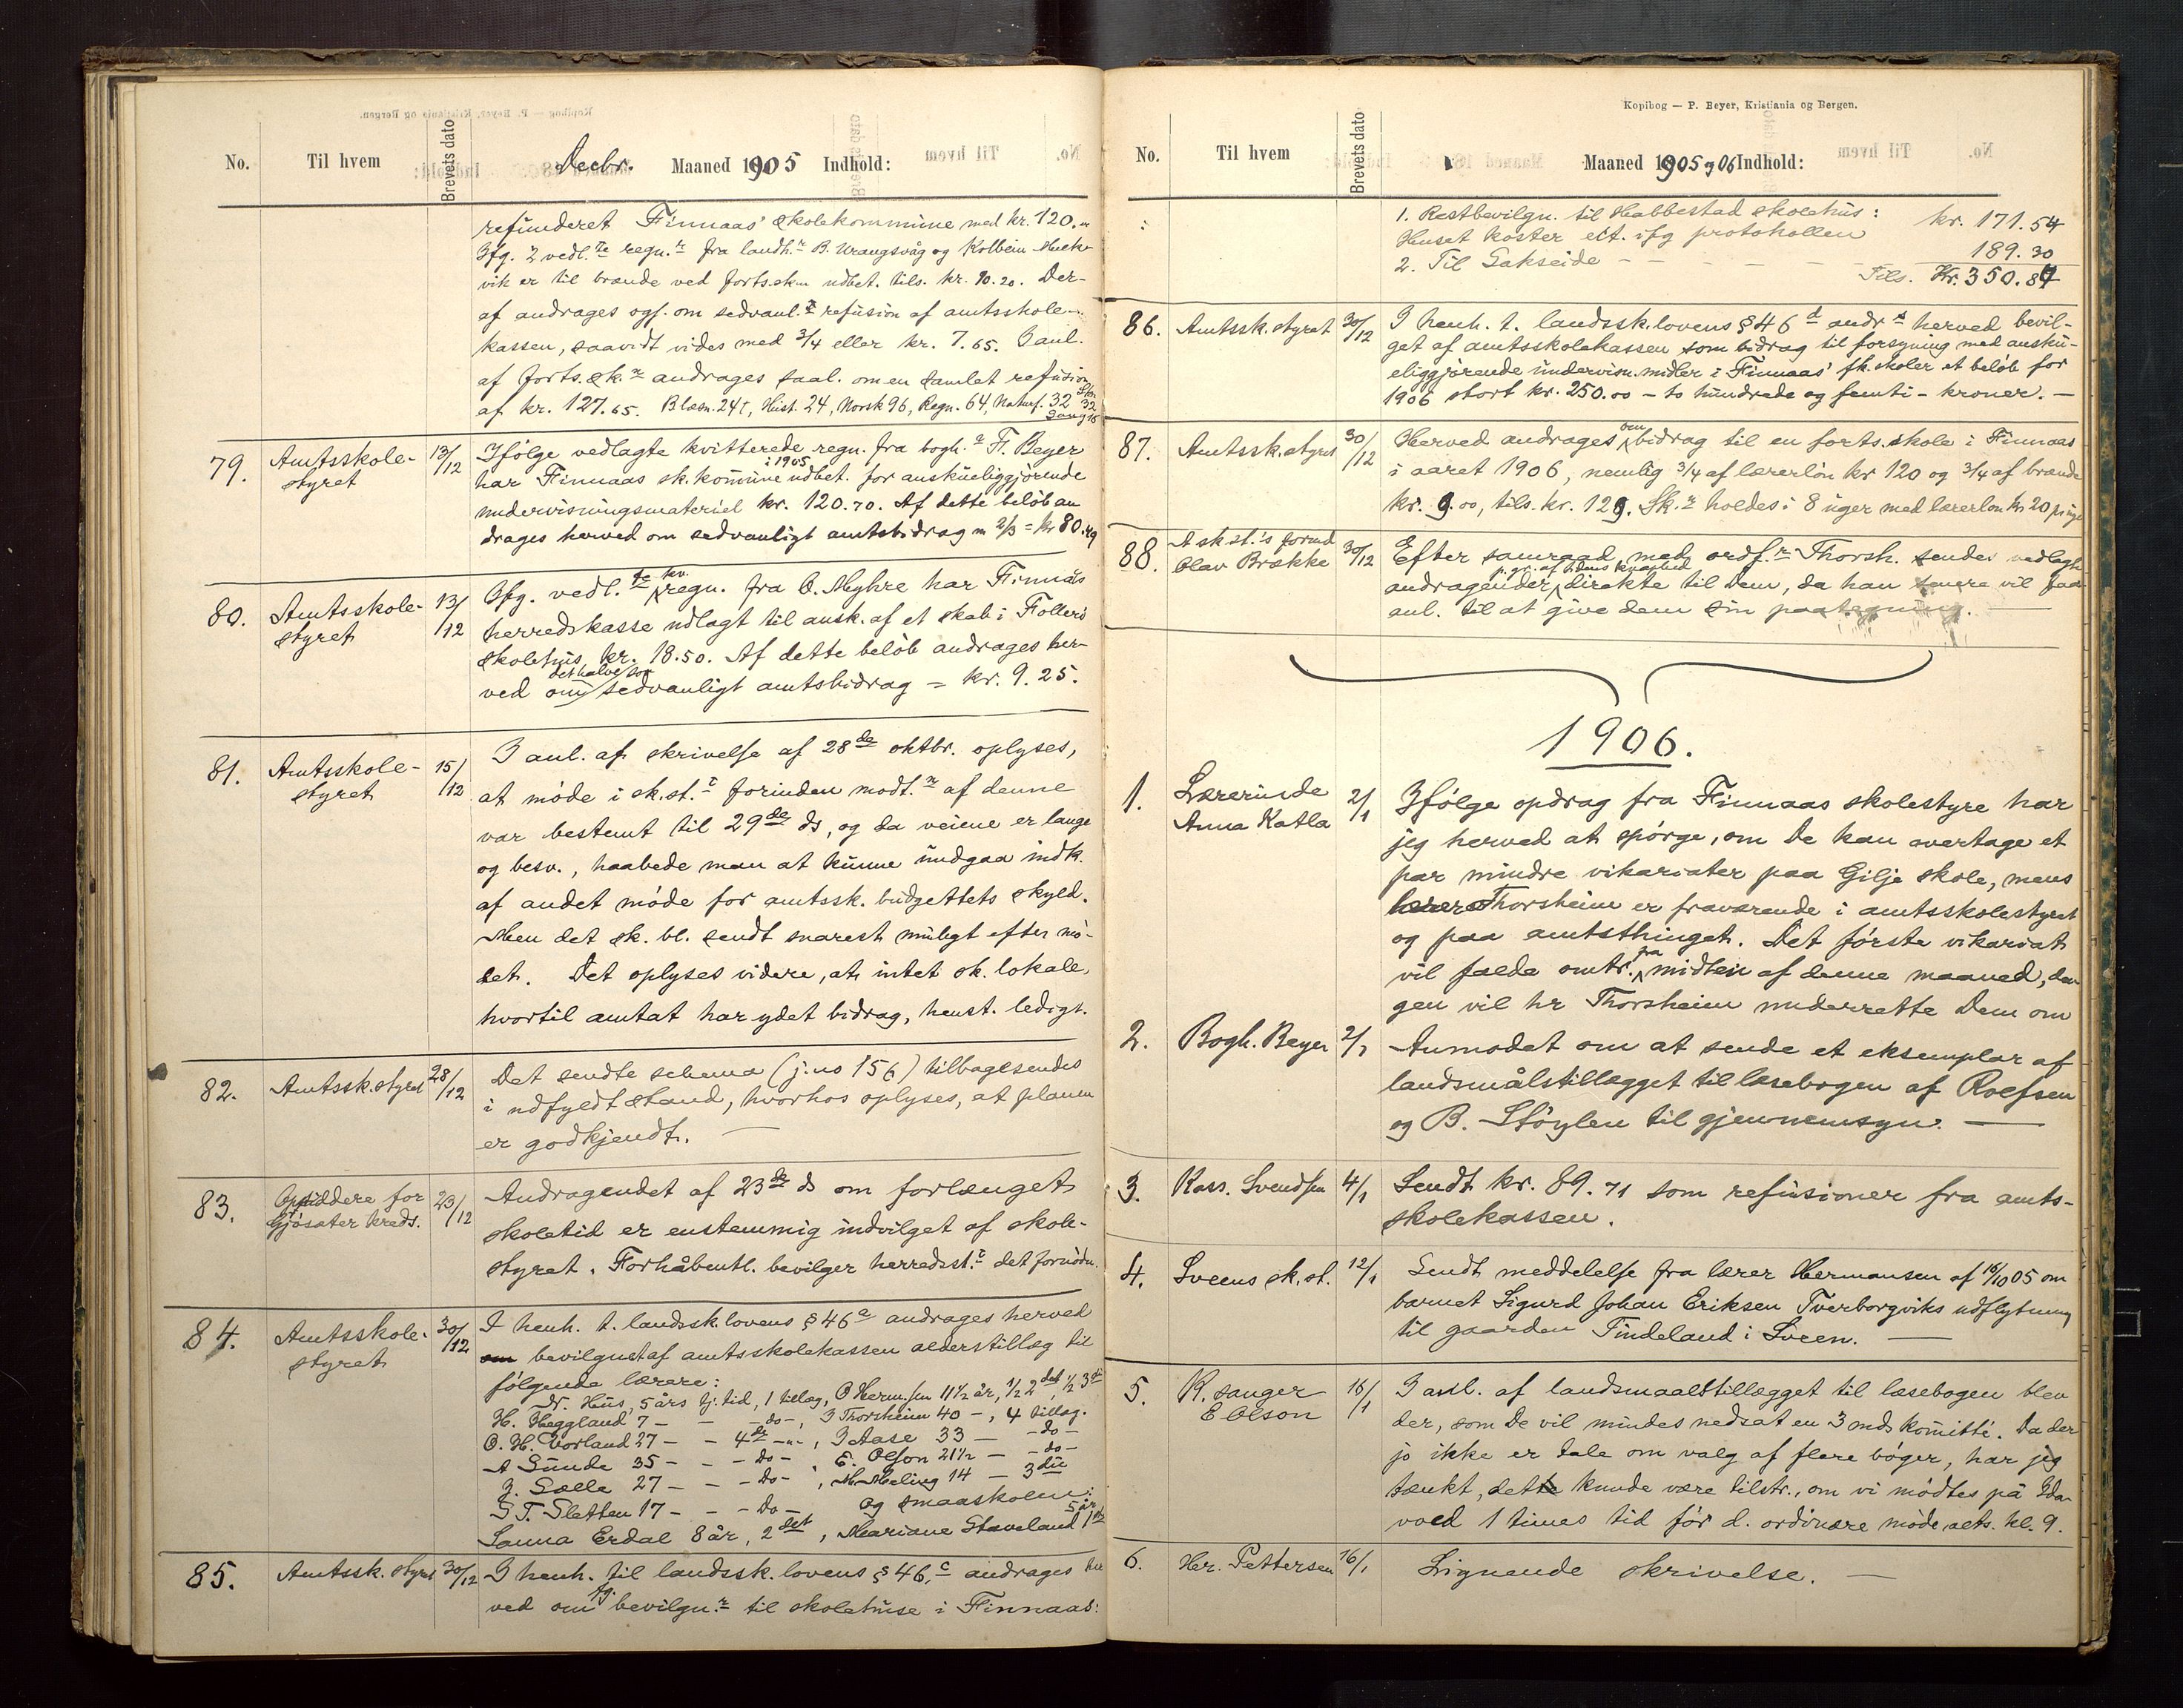 No. Til hvem Brevets dato Decbr. Maaned 1905 Indhold:
refunderet Finnaas' skolekommune med kr. 120.
Ifg. 2 vedl.te regn.r fra landh.r B. Urangsvåg og Kolbein
vik er til brænde ved forts.skn udbet. tils. kr. 10.20. Der-
af andrages ogs. om sedvanl. refusion af amtsskole-
kassen, saavidt vides med 3/4 eller kr. 7.65. I anl.
af forts.sk.r andrages saal. om en samlet refusion
af kr. 127.65. Blæsn. 24t, Hist. 24, Norsk 96, Regn. 64, Naturf. 32
79. Amtsskole-
styret 13/12
Ifølge vedlagte kvitterede regn. fra bogh. F. Beyer
har Finnaas sk.kommune i 1905 udbet. for anskueliggjørende
undervisningsmateriel kr. 120.70. Af dette beløb an
drages herved om sedvanligt amtsbidrag m 2/3 = kr 80.49
80. Amtsskole-
styret 13/12
Ifg. vedl.te kv. regn. fra O. Myhre har Finnås
herredskasse udlagt til ansk. af et skab i Follerø
skolehus kr. 18.50. Af dette beløb andrages her-
ved om det halve som sedvanligt amtsbidrag = kr. 9.25.
81. Amtsskole-
styret 15/12
I anl. af skrivelse af 28de oktbr. oplyses,
at møde i sk.st.t forinden modt.n af denne
var bestemt til 29de ds, og da veiene er lange
og besv., haabede man at kunne undgaa indk.
af andet møde for amtssk. budgettets skyld.
Men det sk. bl. sendt snarest muligt efter mø-
det. Det oplyses videre, at intet sk. lokale,
hvortil amtat har ydet bidrag, henst. ledigt.
82. Amtssk.styret 28/12
Det sendte schema (j.no 156) tilbagesendes
i udfyldt stand, hvorhos oplyses, at planen
er godkjendt. —
83. Opsiddere for
Gjøsæter kreds. 23/12
Andragendet af 23de ds om forlænget
skoletid er enstemmig indvilget af skole-
styret. Forhåbentl. bevilger herredsst.t det fornødn.
84. Amtsskole-
styret 30/12
I henh. t. landssk.lovens § 46a andrages herved
om bevilgnet af amtsskolekassen alderstillæg til
følgende lærere:
N. Hus, 5 års tj.tid, 1 tillæg, O Herm.sen 11 1/2 år, 1/2 2det, 1/2 3di
H. Heggland 7 — — -do-, I Thorsheim 40 —, 4 tillæg.
O. H. Vorland 27 — — 4de -"-, I Aase 33 — -do-
A Sunde 35 — — -do-, E. Olson 21 1/2 — -do-
J. Sælle 27 — — -do-, M. Meling 14 — 3die
S T. Sletten 17 — — -do- og smaaskolen:
Sanna Erdal 8 år, 2det, Mariane Staveland 5 år 1ste
85. Amtssk.styret 30/12
I henh. til landssk.lovens § 46,c andrages her
ved om fg. bevilgn.r til skolehuse i Finnaas:
Kopibog — P. Beyer, Kristiania og Bergen.
No. Til hvem Brevets dato Maaned 1905 og 06 Indhold:
1. Restbevilgn. til Habbestad skolehus: kr. 171.54
Huset koster eit. ifg protokollen
2. Til Gakseide — — — — — 189.30
Tils. Kr. 350.84
86. Amtssk.styret 30/12
I henh. t. landssk.lovens § 46d andr.s herved bevil-
get af amtsskolekassen som bidrag til forsyning med ansku-
eliggjørende undervisn.midler i Finnaas' fk.skoler et beløb for
1906 stort kr. 250.00 — to hundrede og femti — kroner. —
87. Amtssk.styret 30/12
Herved andrages om bidrag til en forts.skole i Finnaas
i aaret 1906, nemlig 3/4 af lærerløn kr 120 og 3/4 af brænde
kr. 9.00, tils. kr. 129. Sk.n holdes i 8 uger med lærerløn kr 20 pr uge
88. A sk st.'s formd
Olav Brække 30/12
Efter samraad med ordf. Thorsh. sendes vedlagte
andragender p. gr. af tidens knaphed direkte til Dem, da han senere vil faa
anl. til at give dem sin paategning. —
1906.
1. Lærerinde
Anna Katla 2/1
Ifølge opdrag fra Finnaas skolestyre har
jeg herved at spørge, om De kan overtage et
par mindre vikariater paa Gilje skole, mens
lærer Thorsheim er fraværende i amtsskolestyret
og paa amtsthinget. Det første vikariat
vil falde omtr. fra midten af denne maaned, da
gen vil hr Thorsheim underrette Dem om
2. Bogh. Beyer 2/1
Anmodet om at sende et eksemplar af
landsmålstillægget til læsebogen af Rolfsen
og B. Støylen til gjennemsyn. —
3. Kass. Svendsen 4/1
Sendt kr. 89.71 som refusioner fra amts-
skolekassen.
4. Sveens sk.st. 12/1
Sendt meddelelse fra lærer Hermansen af 16/10 05 om
barnet Sigurd Johan Eriksen Tverborgviks udflytning
til gaarden Tindeland i Sveen. —
5. K. sanger
E Olson 16/1
I anl. af landsmaalstillægget til læsebogen blev
der, som De vil mindes nedsat en 3 mds komitté. Da der
jo ikke er tale om valg af flere bøger, har jeg
tænkt, det kunde være tilstr., om vi mødtes på Ida-
voed 1 times tid før d. ordinære møde, alts. kl. 9.
6. Hr. Pettersen 16/1
Lignende skrivelse. —